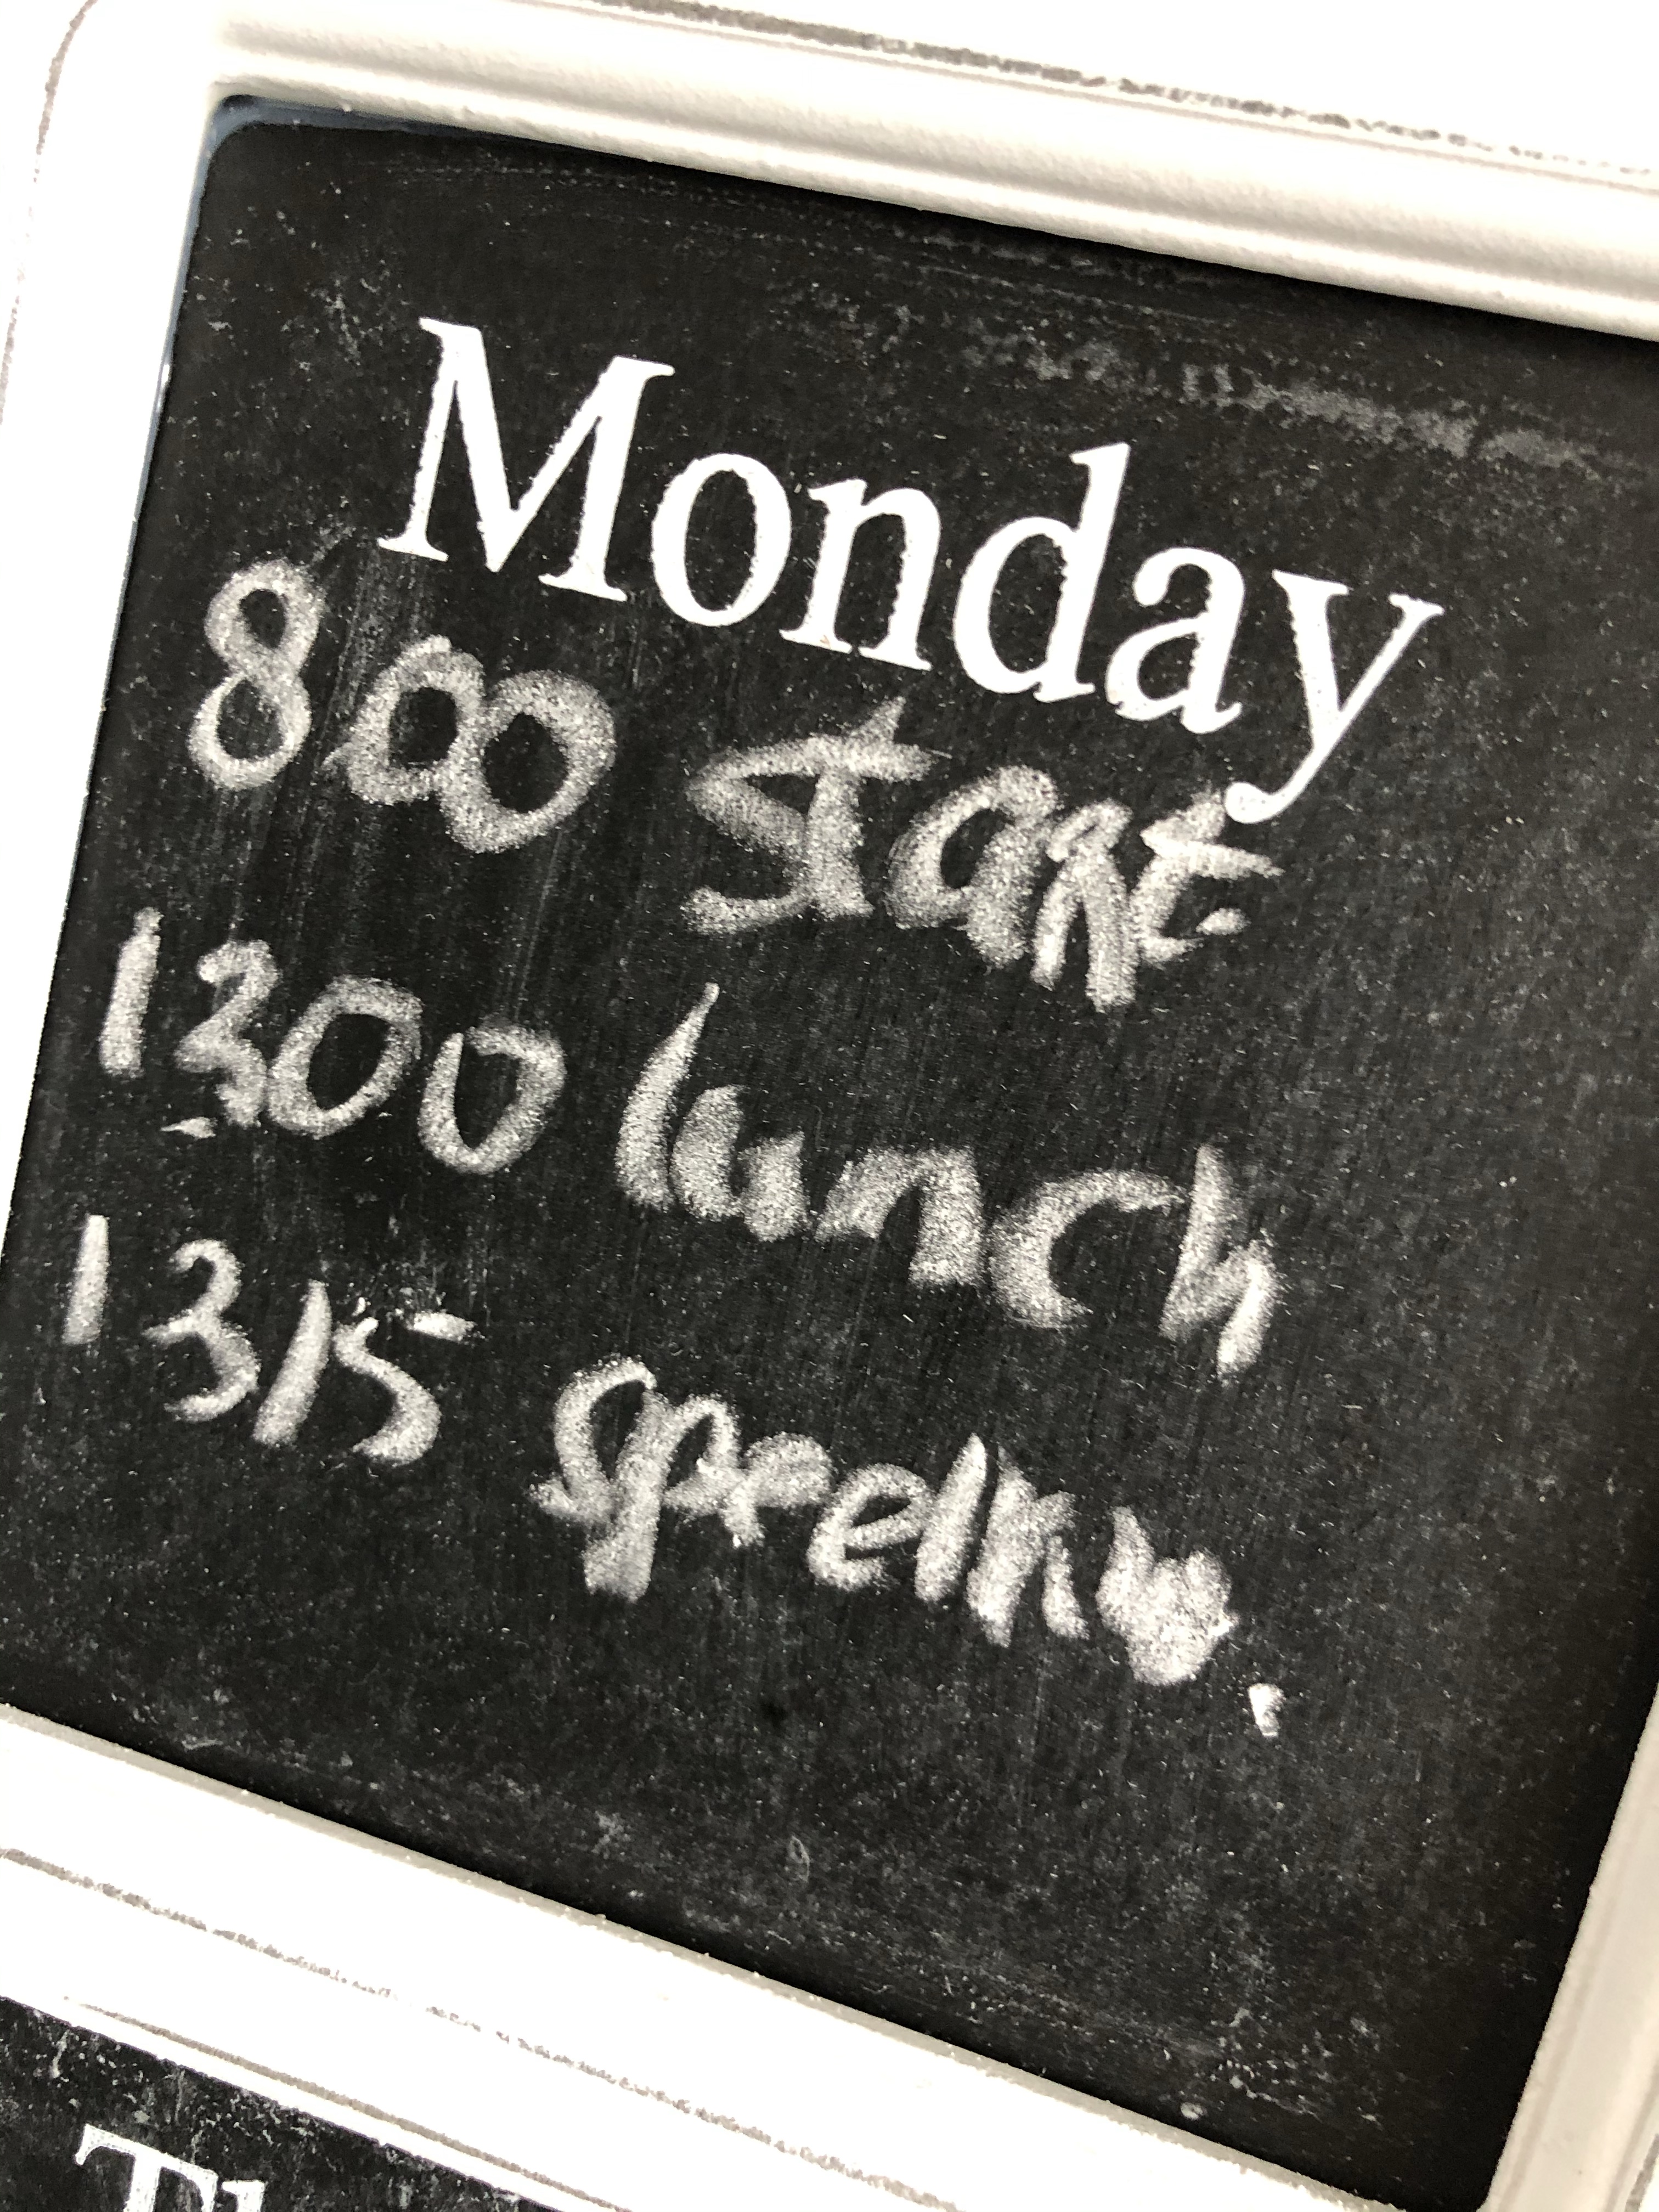 Monday
800 start
1300 lunch
1315 speelkw.